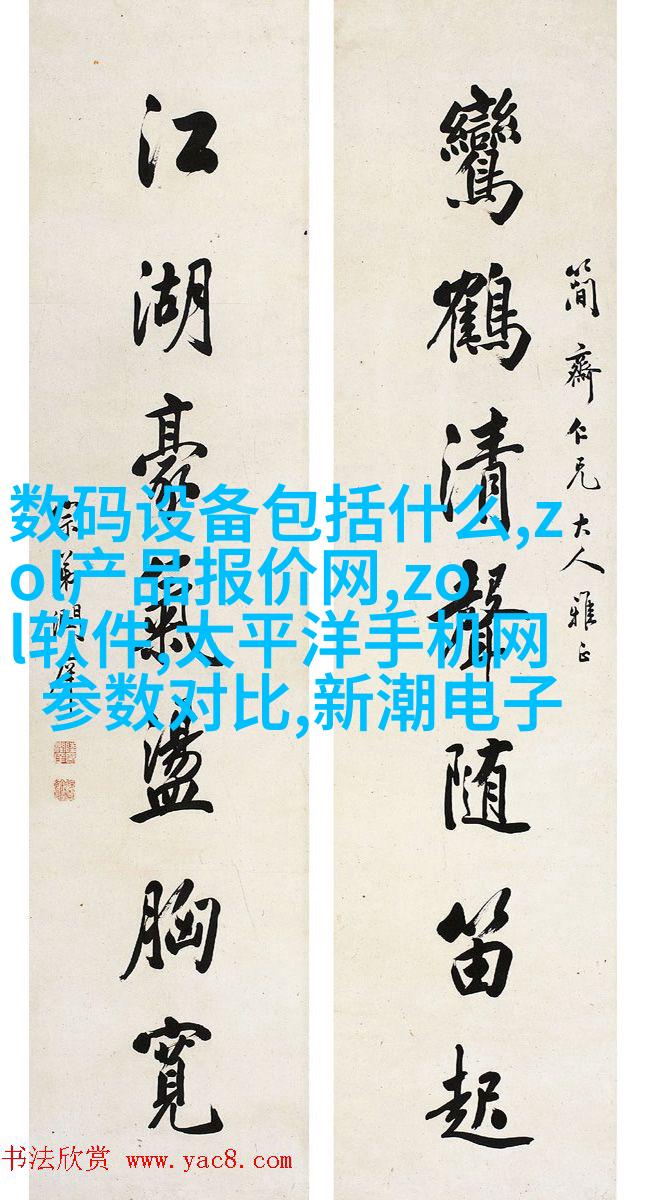 鸞鶴清聲随笛起
簡齋仁兄大人雅正
江湖豪氣盪胸寬
数码设备包括什么,z
ol产品报价网,zo
l软件,太平洋手机网
参数对比,新潮电子
书法欣赏 www.yac8.com